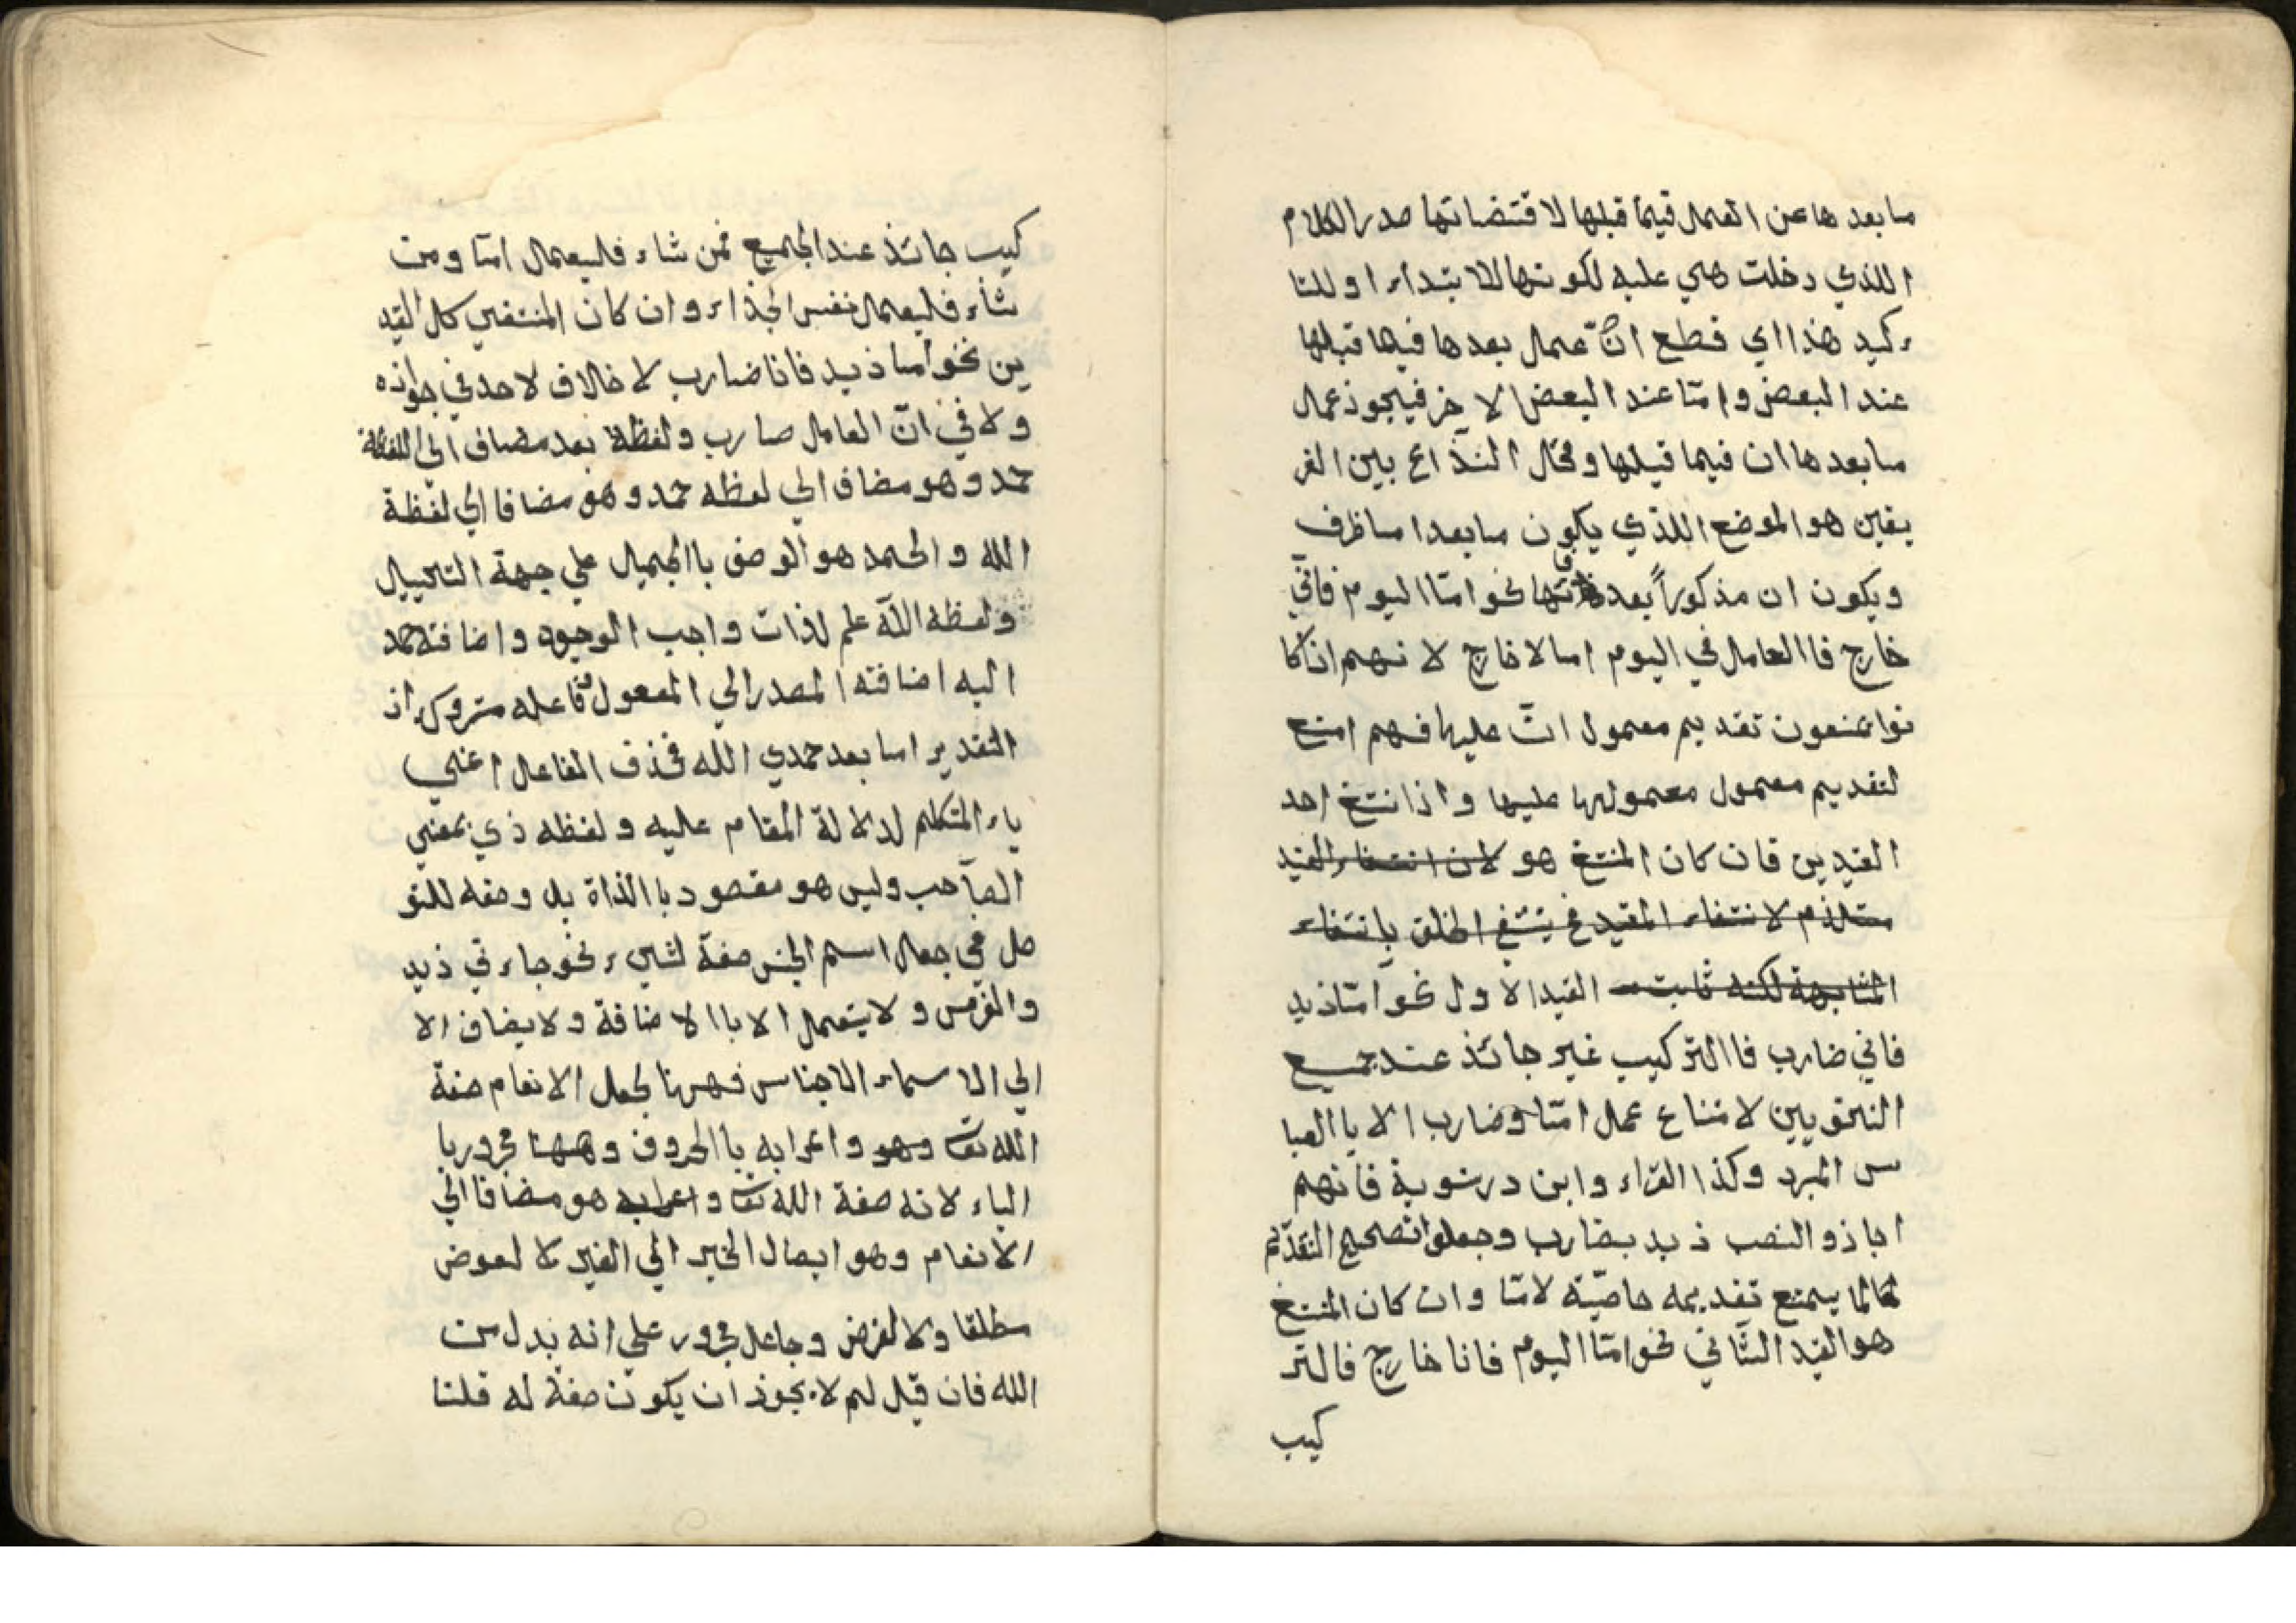 ما بعد ها عن العمل فيما قبلها لاقتضائها صدر الكلام
اللذي دخلت هي عليه لكونها للابتداء او للتا
ء كيد هذا اي قطع انّ عمل بعدها فيها قبلها
عند البعض وامّا عند البعض الاخر فيجوز عمل
ما بعدها ان فيما قبلها ومحال النذاع بين الفر
يقين هو الموضع اللذي يكون ما بعد اما ظرف
ويكون ان مذكوراً بعد نحو امّا اليوم فانّي
خارج فاالعامل في اليوم اما لا خارج لا نهم اذا كا
نوا يمنعون تقديم معمول انّ عليها فهم امنع
لتقديم معمول معمولها عليها واذا نتفح احد
القيدين فان كان المنتفح هو لان انتفاء القيد
مستلذم لانتفاء المقيد في ينتفي المطلق بانتفاء
المشابهة لكنه ثابت القيد الاول نحو امّا ذيد
فاني ضارب فاالتركيب غير جائذ عند جميع
النحويين لامتناع عمل امّا وضارب الا باالعبا
س المبرد وكذا الفراء وابن درستوية فانهم
اجاذو النصب ذيد بضارب وجعلوا تصحيح التقدّم
لما يمتنع تقديمه خاصّيّة لامّا وان كان المنتفح
هو القيد الثّاني نحو امّا اليوم فانا خارج فالتر
كيب
كيب جائذ عند الجميع فمن شاء فليعمال امّا ومن
شاء فليعمل نفس الجذاء وان كان المنتفي كل القيد
ين نحو اما ذيد فانا ضارب لاخالاف لاحد في جواذه
ولا في انّ العامل ضارب ولفظة بعد مضاف الي اللفظة
حمد وهو مضاف الي لفظه حمد وهو مضافا الي لفظة
الله والحمد هو الوصف باالجميل علي جهة التبجيل
ولفظه اللّه علم لذات واجب الوجود واضافته حمد
اليه اضافته المصدر الي المفعول وفاعله متروك اذ
التقدير اما بعد حمدي الله فحذف الفاعل اعني
ياء المتكلم لدلالة المقام عليه ولفظه ذي بمعني
الصّاحب وليس هو مقصود باالذاة بل وصفه للتو
صل في جعل اسم الجنس صفة لشيء نحو جاء ني ذيد
والفرس ولا يتعمل الا باالاضافة ولا يضاف الا
الي الاسماء الاجناس فهرنا لجعل الانعام صفة
الله تعا وهو واعرابه باالحروف وههنا مجرور با
الياء لانه صفة الله تعا واعرابه هو مضافا الي
الانعام وهو ايصال الخير الي الغير لا لعوض
مطلقا ولا لغرض وجاعل مجرور علي انه بدل من
الله فان قيل لم لا يجوز ان يكون صفة له قلنا